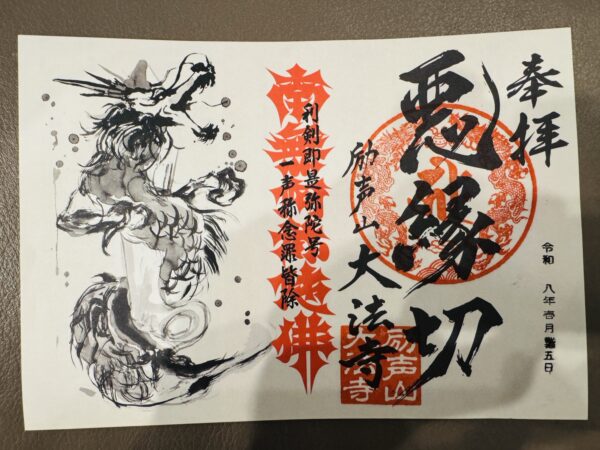 奉拝
悪縁切
励声山大法寺
令和 八年壱月 五日
利剣即是弥陀号
一声称念罪皆除
南無阿弥陀佛
励声山
大法寺